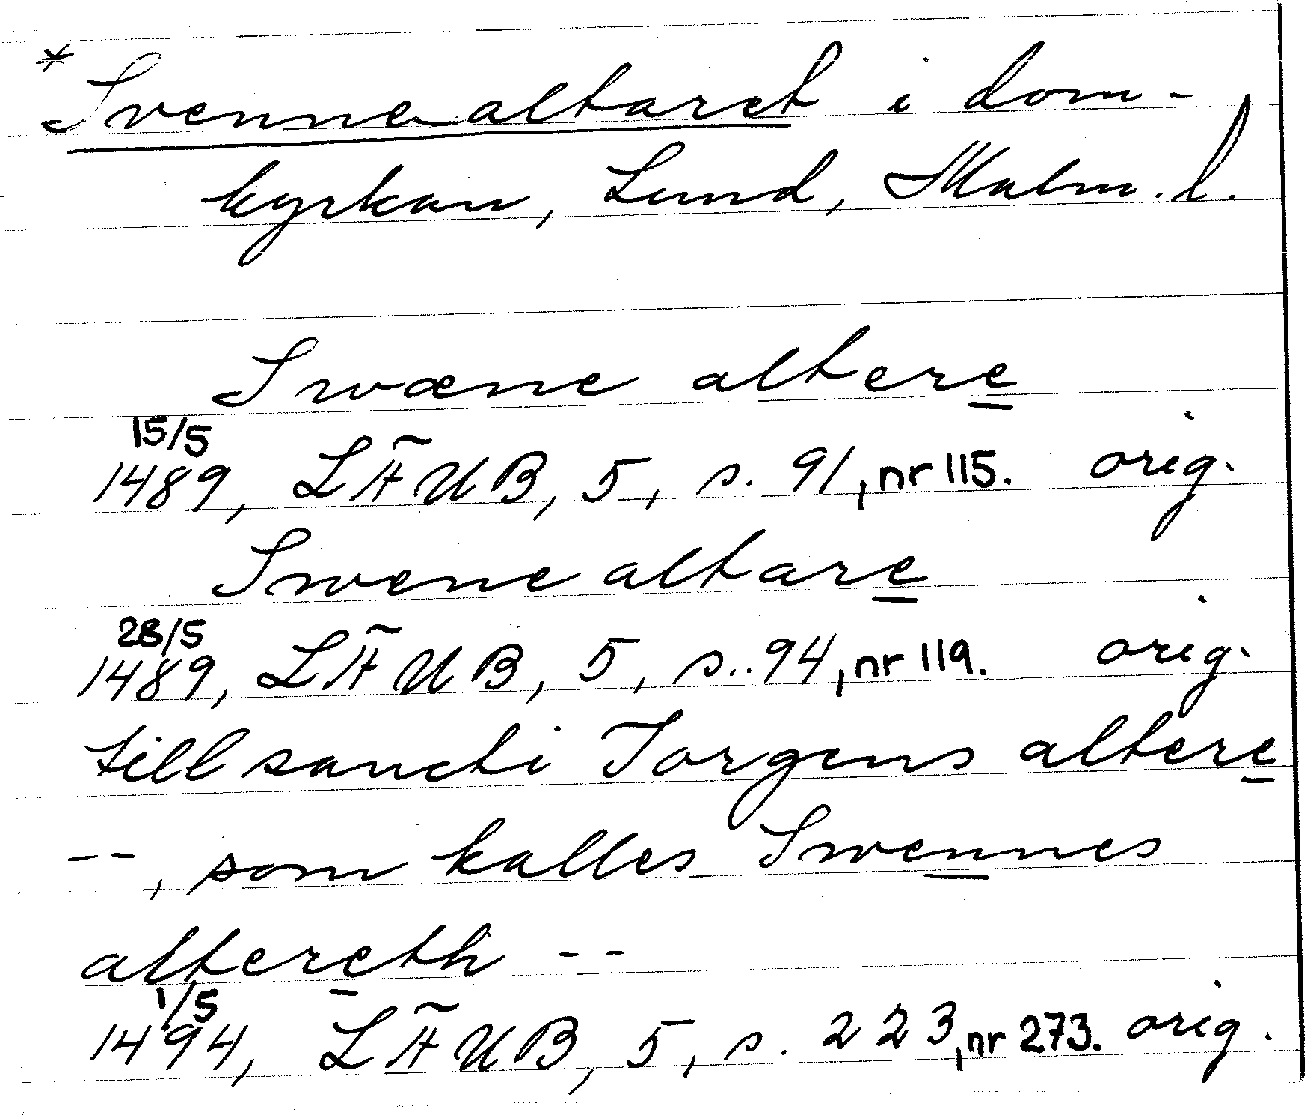 * Svennealtaret i dom-
kyrkan, Lund, Malm. l.
Swæne altere
15/5
1489, LÄUB, 5, s. 91, nr 115. orig.
Swene altare
28/5
1489, LÄUB, 5, s. 94, nr 119. orig.
till sancti Jorgens altere
--, som kalles Swennes
altereth --
1/5
1494, LÄUB, 5, s. 223, nr 273. orig.